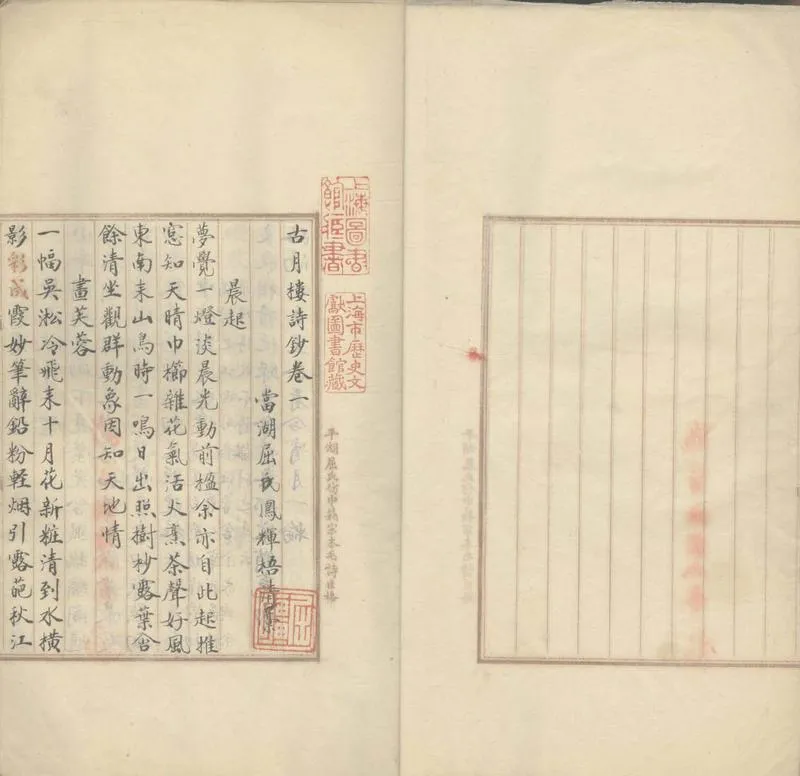 上海圖書館藏書
上海市歷史文獻圖書館藏
古月樓詩鈔卷一
當湖屈氏鳳輝梧
晨起
夢覺一燈淡晨光動前楹余亦自此起推
窓知天晴巾櫛雜花氣活火烹茶聲好風
東南来山鳥時一鳴日出照樹杪露葉含
餘清坐觀群動象因知天地情
畫芙蓉
一幅吳淞冷飛来十月花新粧清到水橫
影彩成霞妙筆辭鉛粉輕烟引露葩秋江